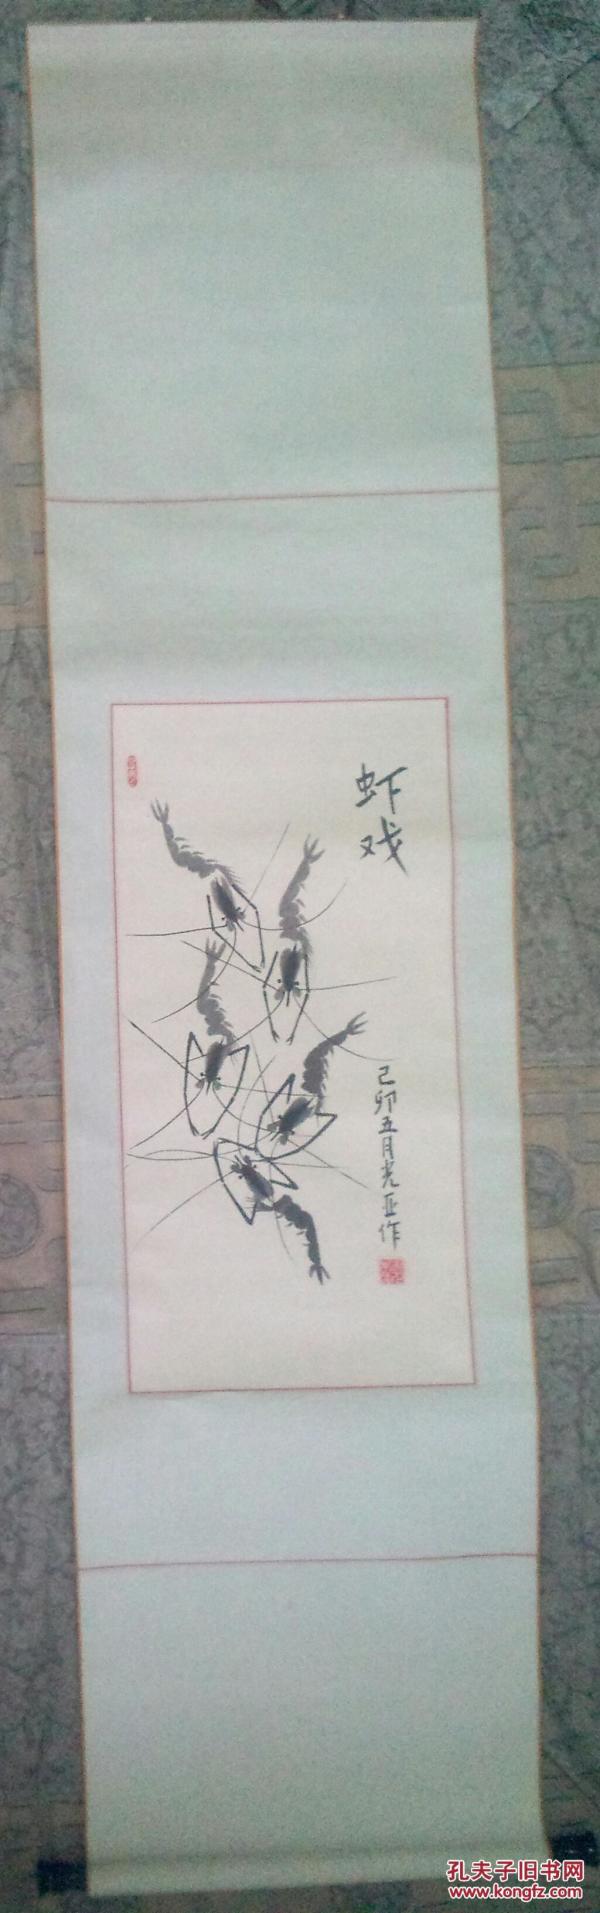 虾戏
己卯五月光亚作
孔夫子旧书网
www.kongfz.com